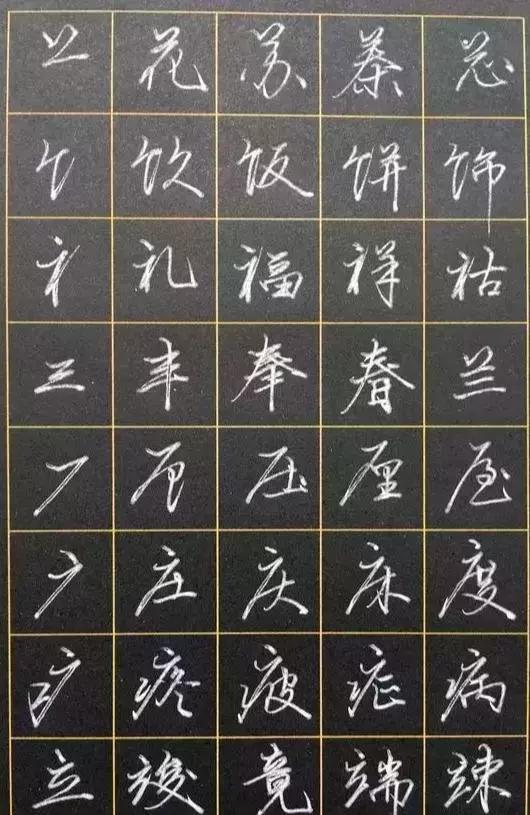 艹 花 苏 茶 芯
饣 饮 饭 饼 饰
礻 礼 福 祥 祜
三 丰 奉 春 兰
厂 厄 压 厘
广 庄 庆 床 度
疒 疼 疲 症 病
立 竣 竟 端 竦